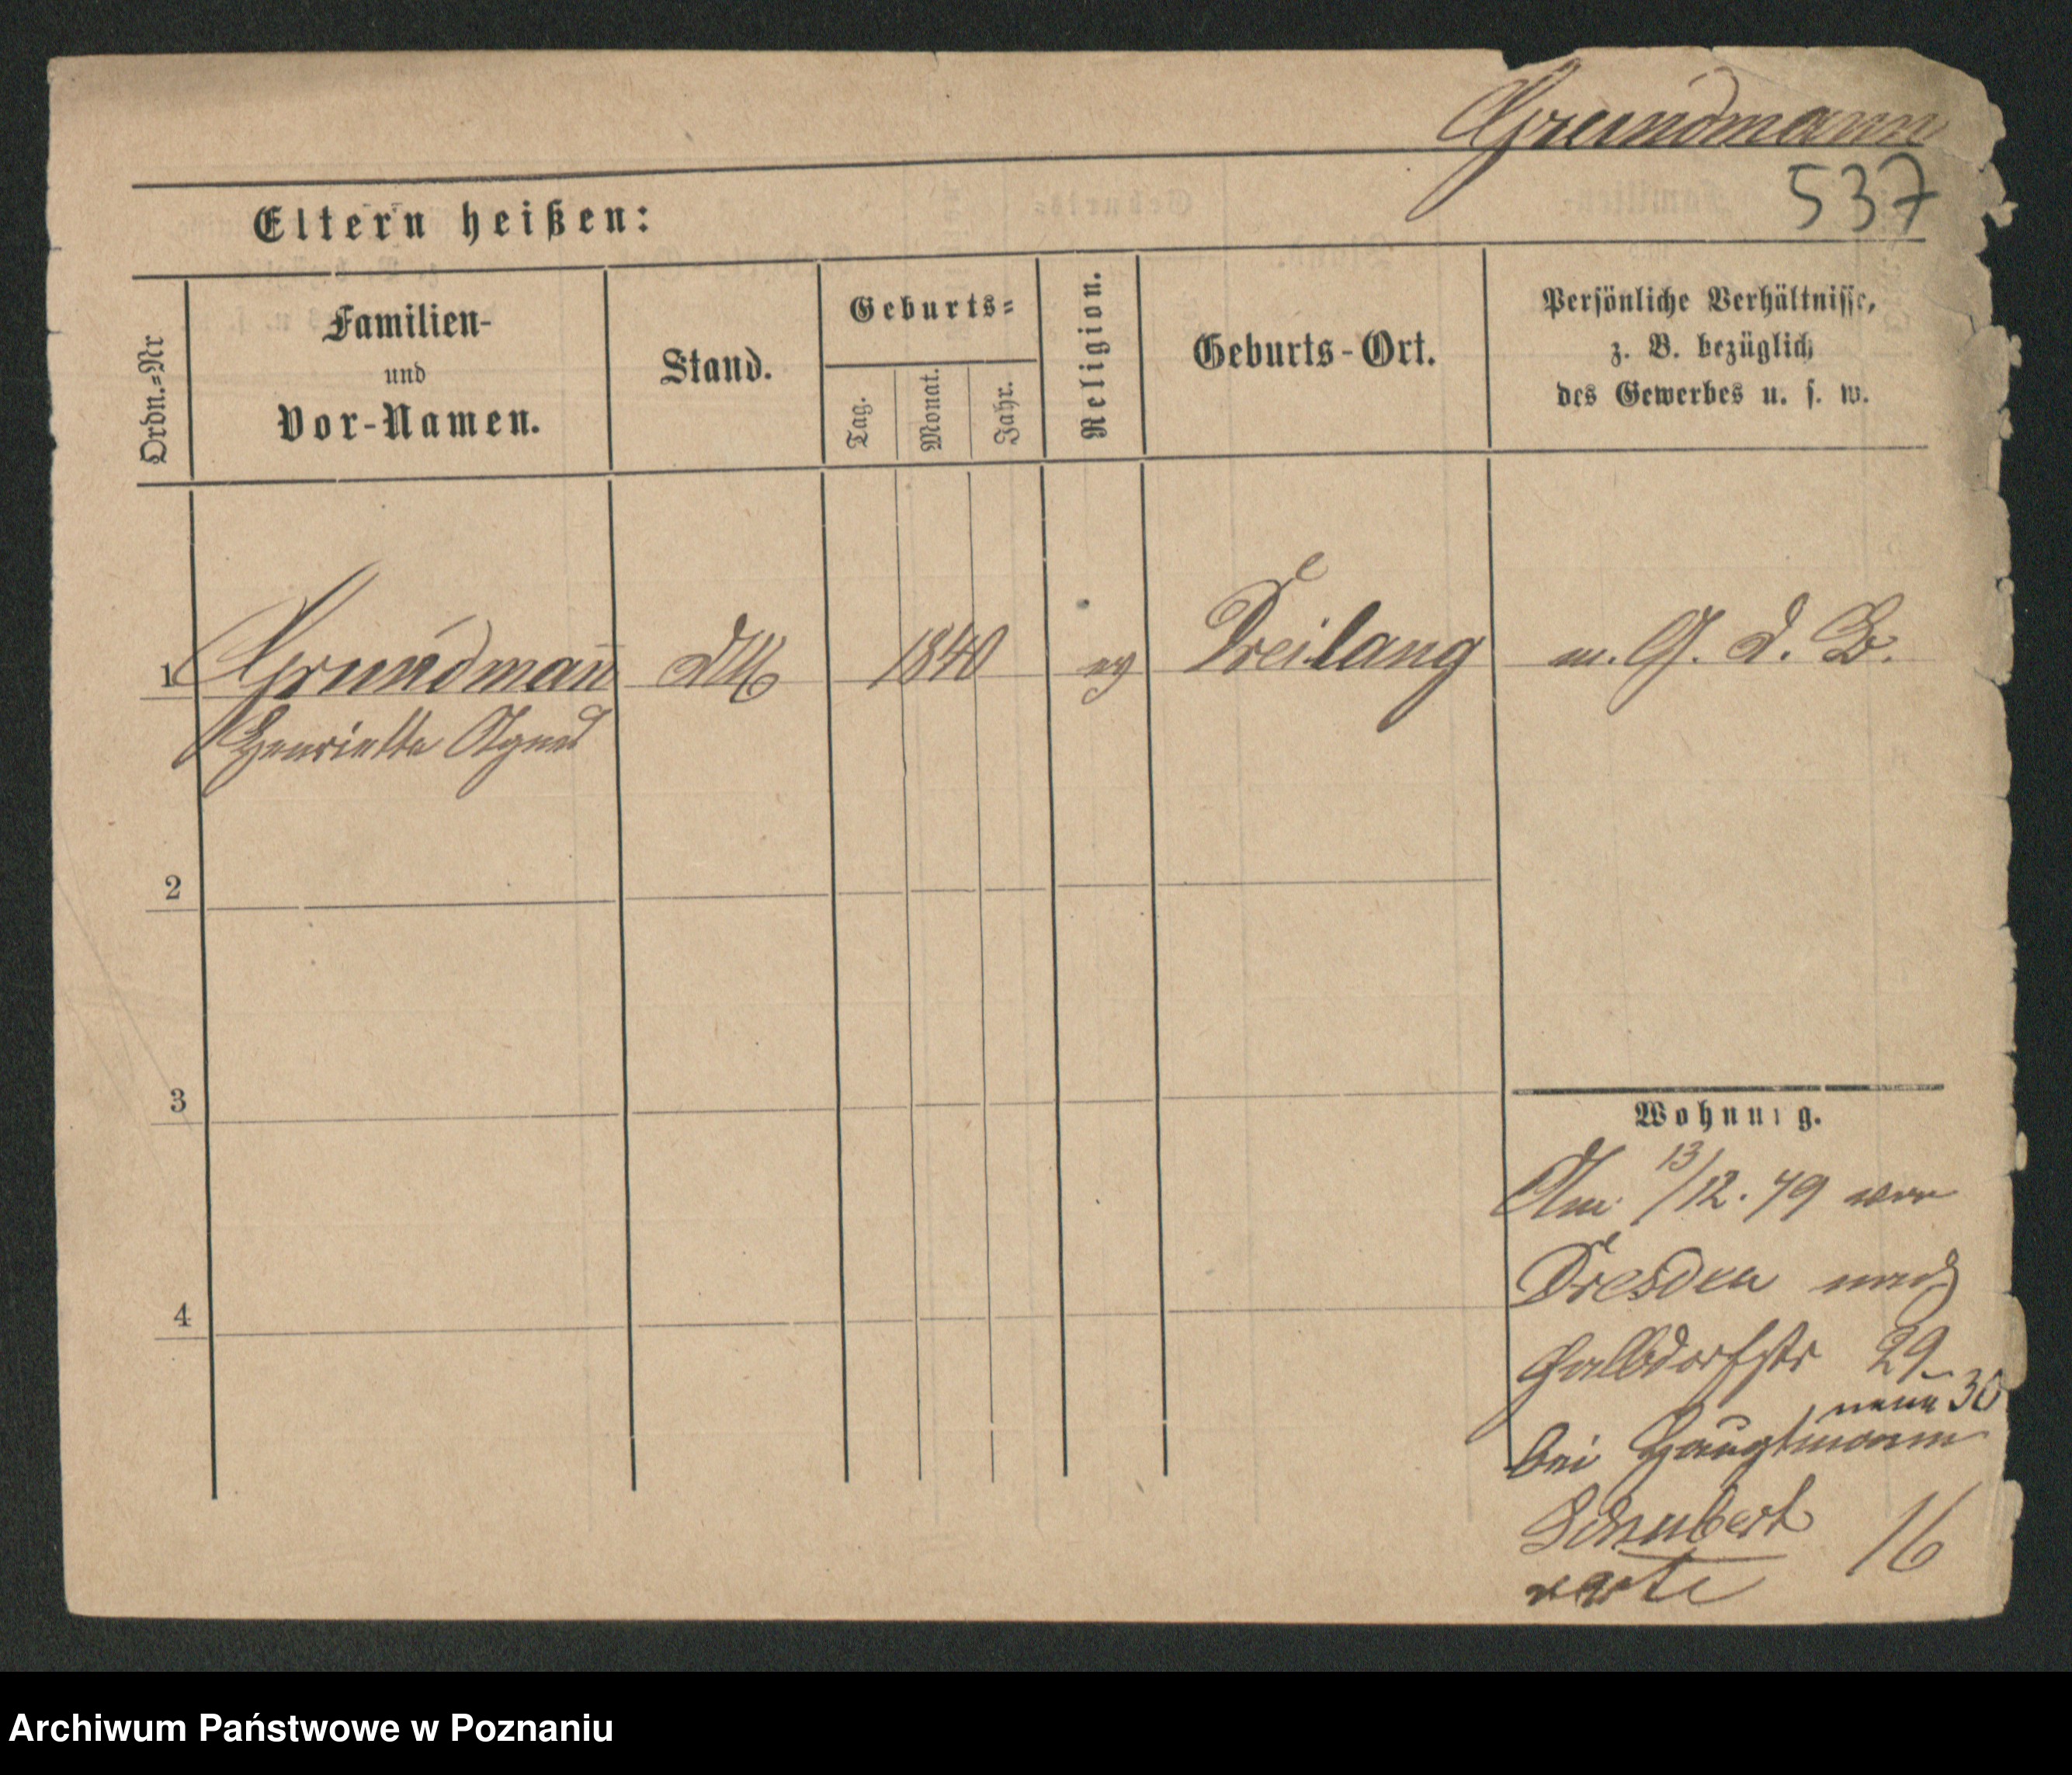 Grundmann
537
Eltern heißen:
Ordn.=Nr
Familien-
und
Vor-Namen.
Stand.
Geburts=
Tag.
Monat.
Jahr.
Religion.
Geburts-Ort.
Persönliche Verhältnisse,
z. B. bezüglich
des Gewerbes u. s. w.
1 Grundman̄ 1840 ev Dreilang m. G. d. B.
Henriette Agnes
2
3
Wohnung.
Am 13/12. 79 von
Dresden nach
Halbdorfstr 29
neue 30
bei Hauptmann
Schubert
16
4
Archiwum Państwowe w Poznaniu